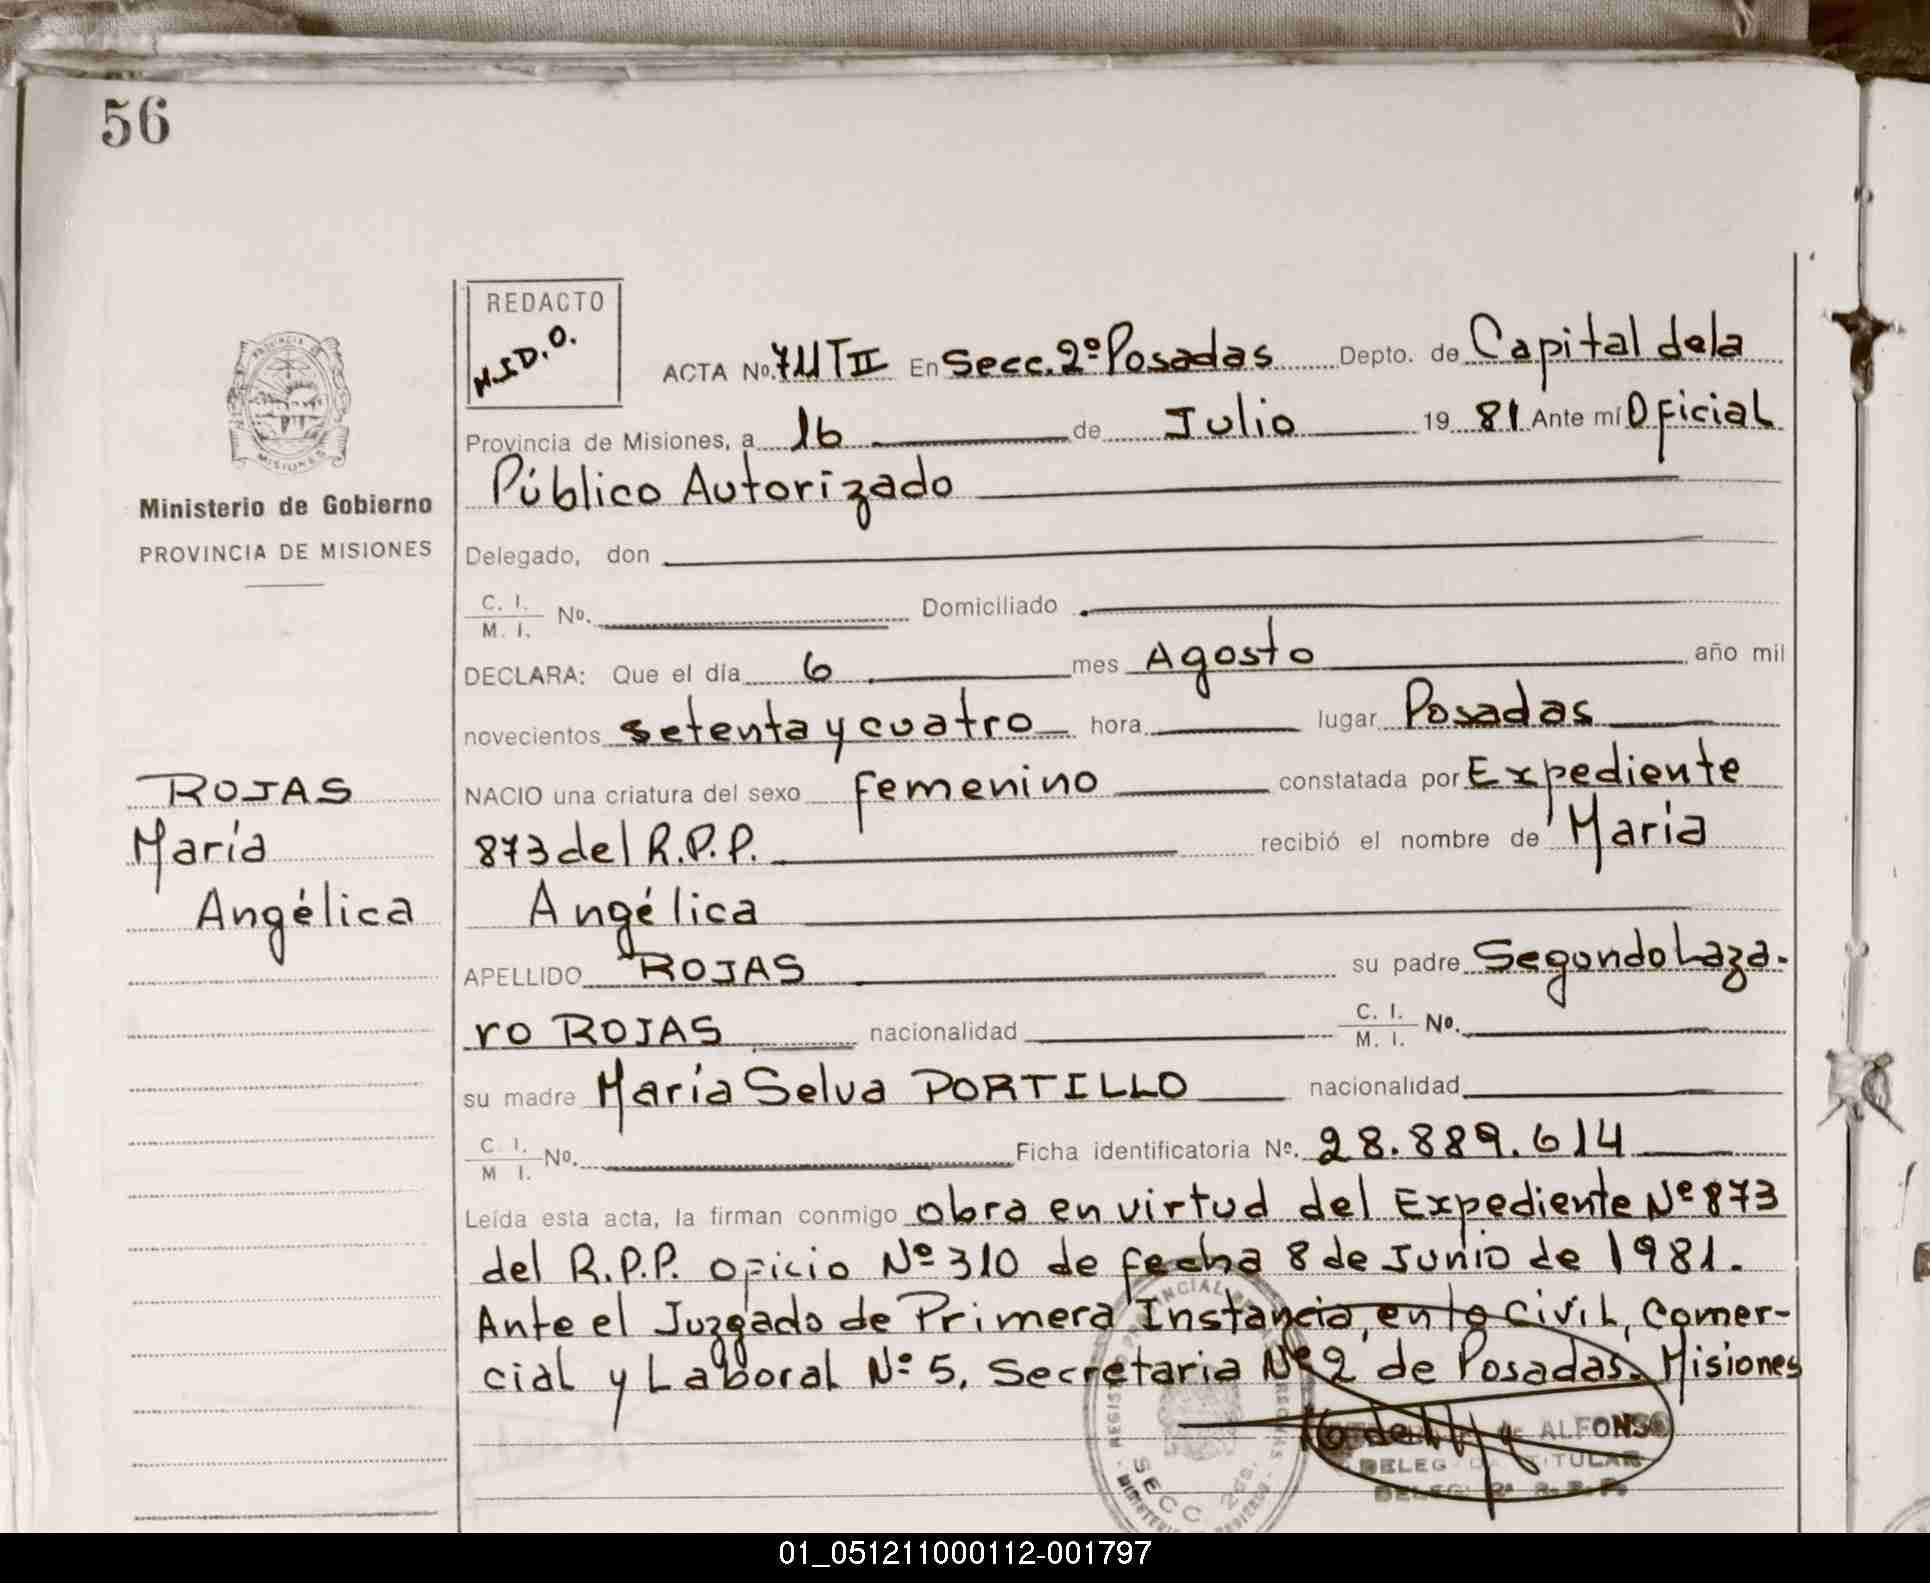 56
REDACTO
N.S.D.O.
ACTA No. 711 T II En Secc. 2º Posadas Depto. de Capital de la
Provincia de Misiones, a 16 de Julio 19 81 Ante mí Oficial
Público Autorizado
Ministerio de Gobierno
PROVINCIA DE MISIONES
Delegado, don
C. I.
M. I. No. Domiciliado
DECLARA: Que el día 6 mes Agosto año mil
novecientos setenta y cuatro hora lugar Posadas
ROJAS
María
Angélica
NACIO una criatura del sexo femenino constatada por Expediente
873 del R.P.P. recibió el nombre de María
Angélica
APELLIDO ROJAS su padre Segundo Laza-
ro ROJAS nacionalidad C. I. M. I. No.
su madre María Selva PORTILLO nacionalidad
C. I. M I. No. Ficha identificatoria Nº. 28.889.614
Leída esta acta, la firman conmigo obra en virtud del Expediente Nº 873
del R.P.P. oficio Nº 310 de fecha 8 de Junio de 1981.
Ante el Juzgado de Primera Instancia, en lo Civil, Comer-
cial y Laboral Nº 5, Secretaria Nº 2 de Posadas. Misiones
ALFONSO
TITULAR
SECC 2da.
01_051211000112-001797